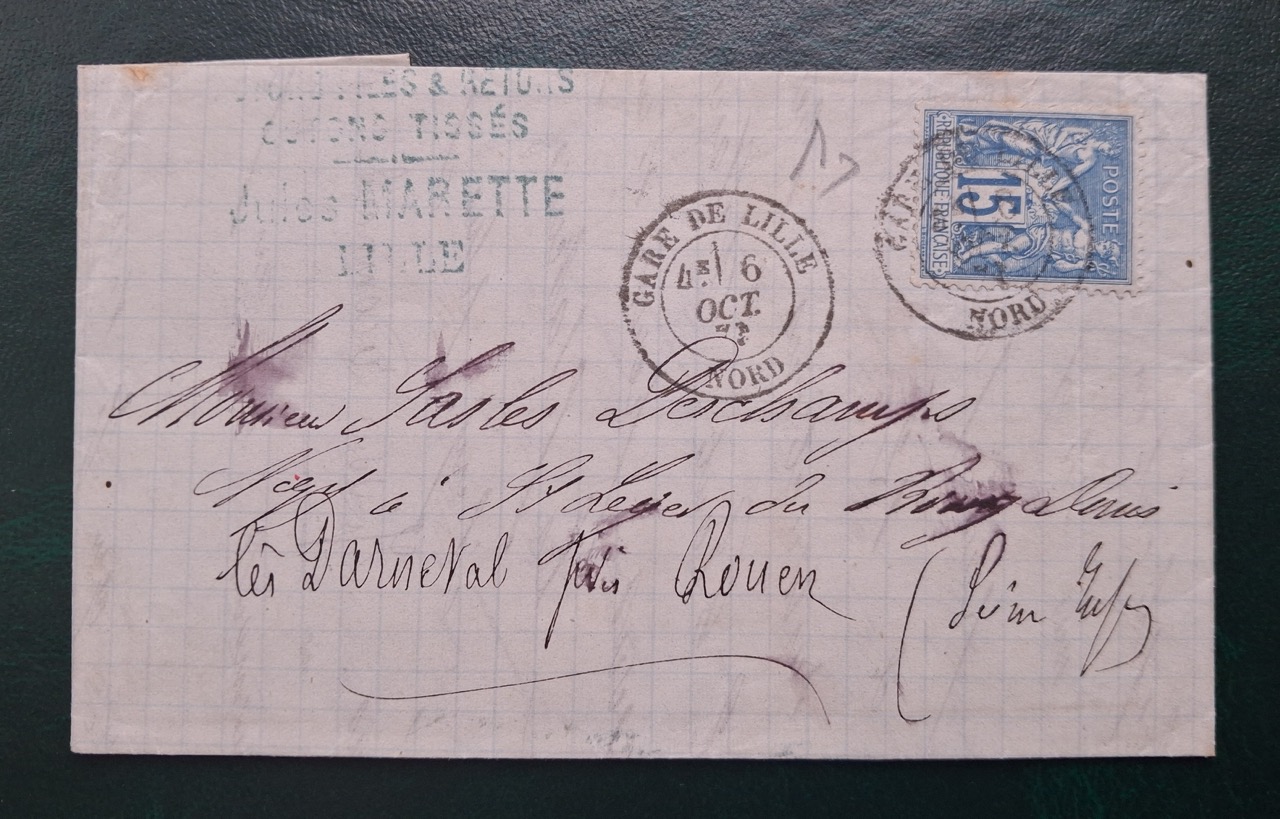 FILÉS & RETORS
COTONS TISSÉS
Jules MARETTE
LILLE
GARE DE LILLE
4E 6
OCT.
NORD
REPUBLIQUE FRANCAISE
15
POSTE
GARE LILLE
NORD
Monsieur Deschamps
à St Leger du Bourg Denis
lès Darnetal près Rouen (Seine Infre